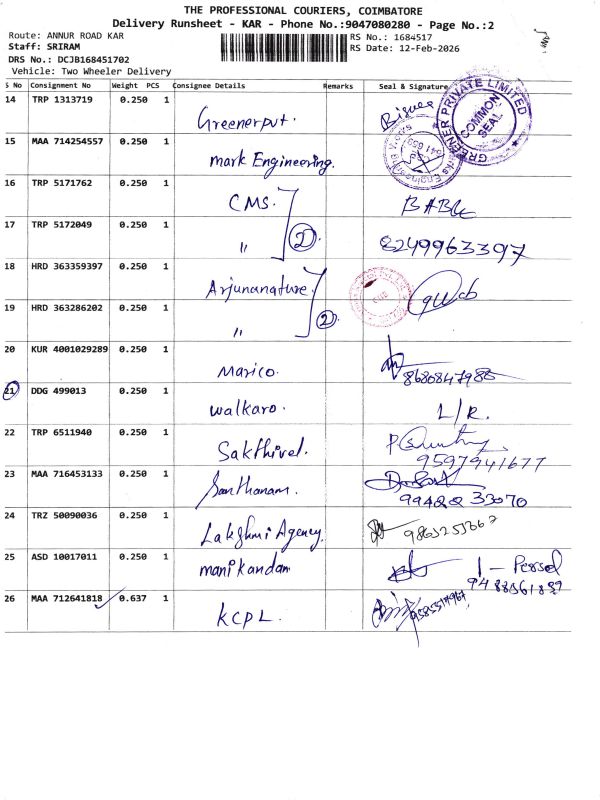 THE PROFESSIONAL COURIERS, COIMBATORE
Delivery Runsheet - KAR - Phone No.:9047080280 - Page No.:2
Route: ANNUR ROAD KAR
RS No.: 1684517
Staff: SRIRAM
RS Date: 12-Feb-2026
DRS No.: DCJB168451702
Vehicle: Two Wheeler Delivery
S No Consignment No Weight PCS Consignee Details Remarks Seal & Signature
14 TRP 1313719 0.250 1 Greenerput.
GREENER PRIVATE LIMITED
COMMON SEAL
15 MAA 714254557 0.250 1 mark Engineering.
16 TRP 5171762 0.250 1 CMS. BABU
17 TRP 5172049 0.250 1 " 2 8249963397
18 HRD 363359397 0.250 1 Arjunanature.
19 HRD 363286202 0.250 1 " 2
20 KUR 4001029289 0.250 1 Marico. 8680847988
21 DDG 499013 0.250 1 walkaro. L/R.
22 TRP 6511940 0.250 1 Sakthivel. 9597941677
23 MAA 716453133 0.250 1 Santhanam. 99422 33070
24 TRZ 50090036 0.250 1 Lakshmi Agency.
25 ASD 10017011 0.250 1 manikandam
26 MAA 712641818 0.637 1 KCPL.